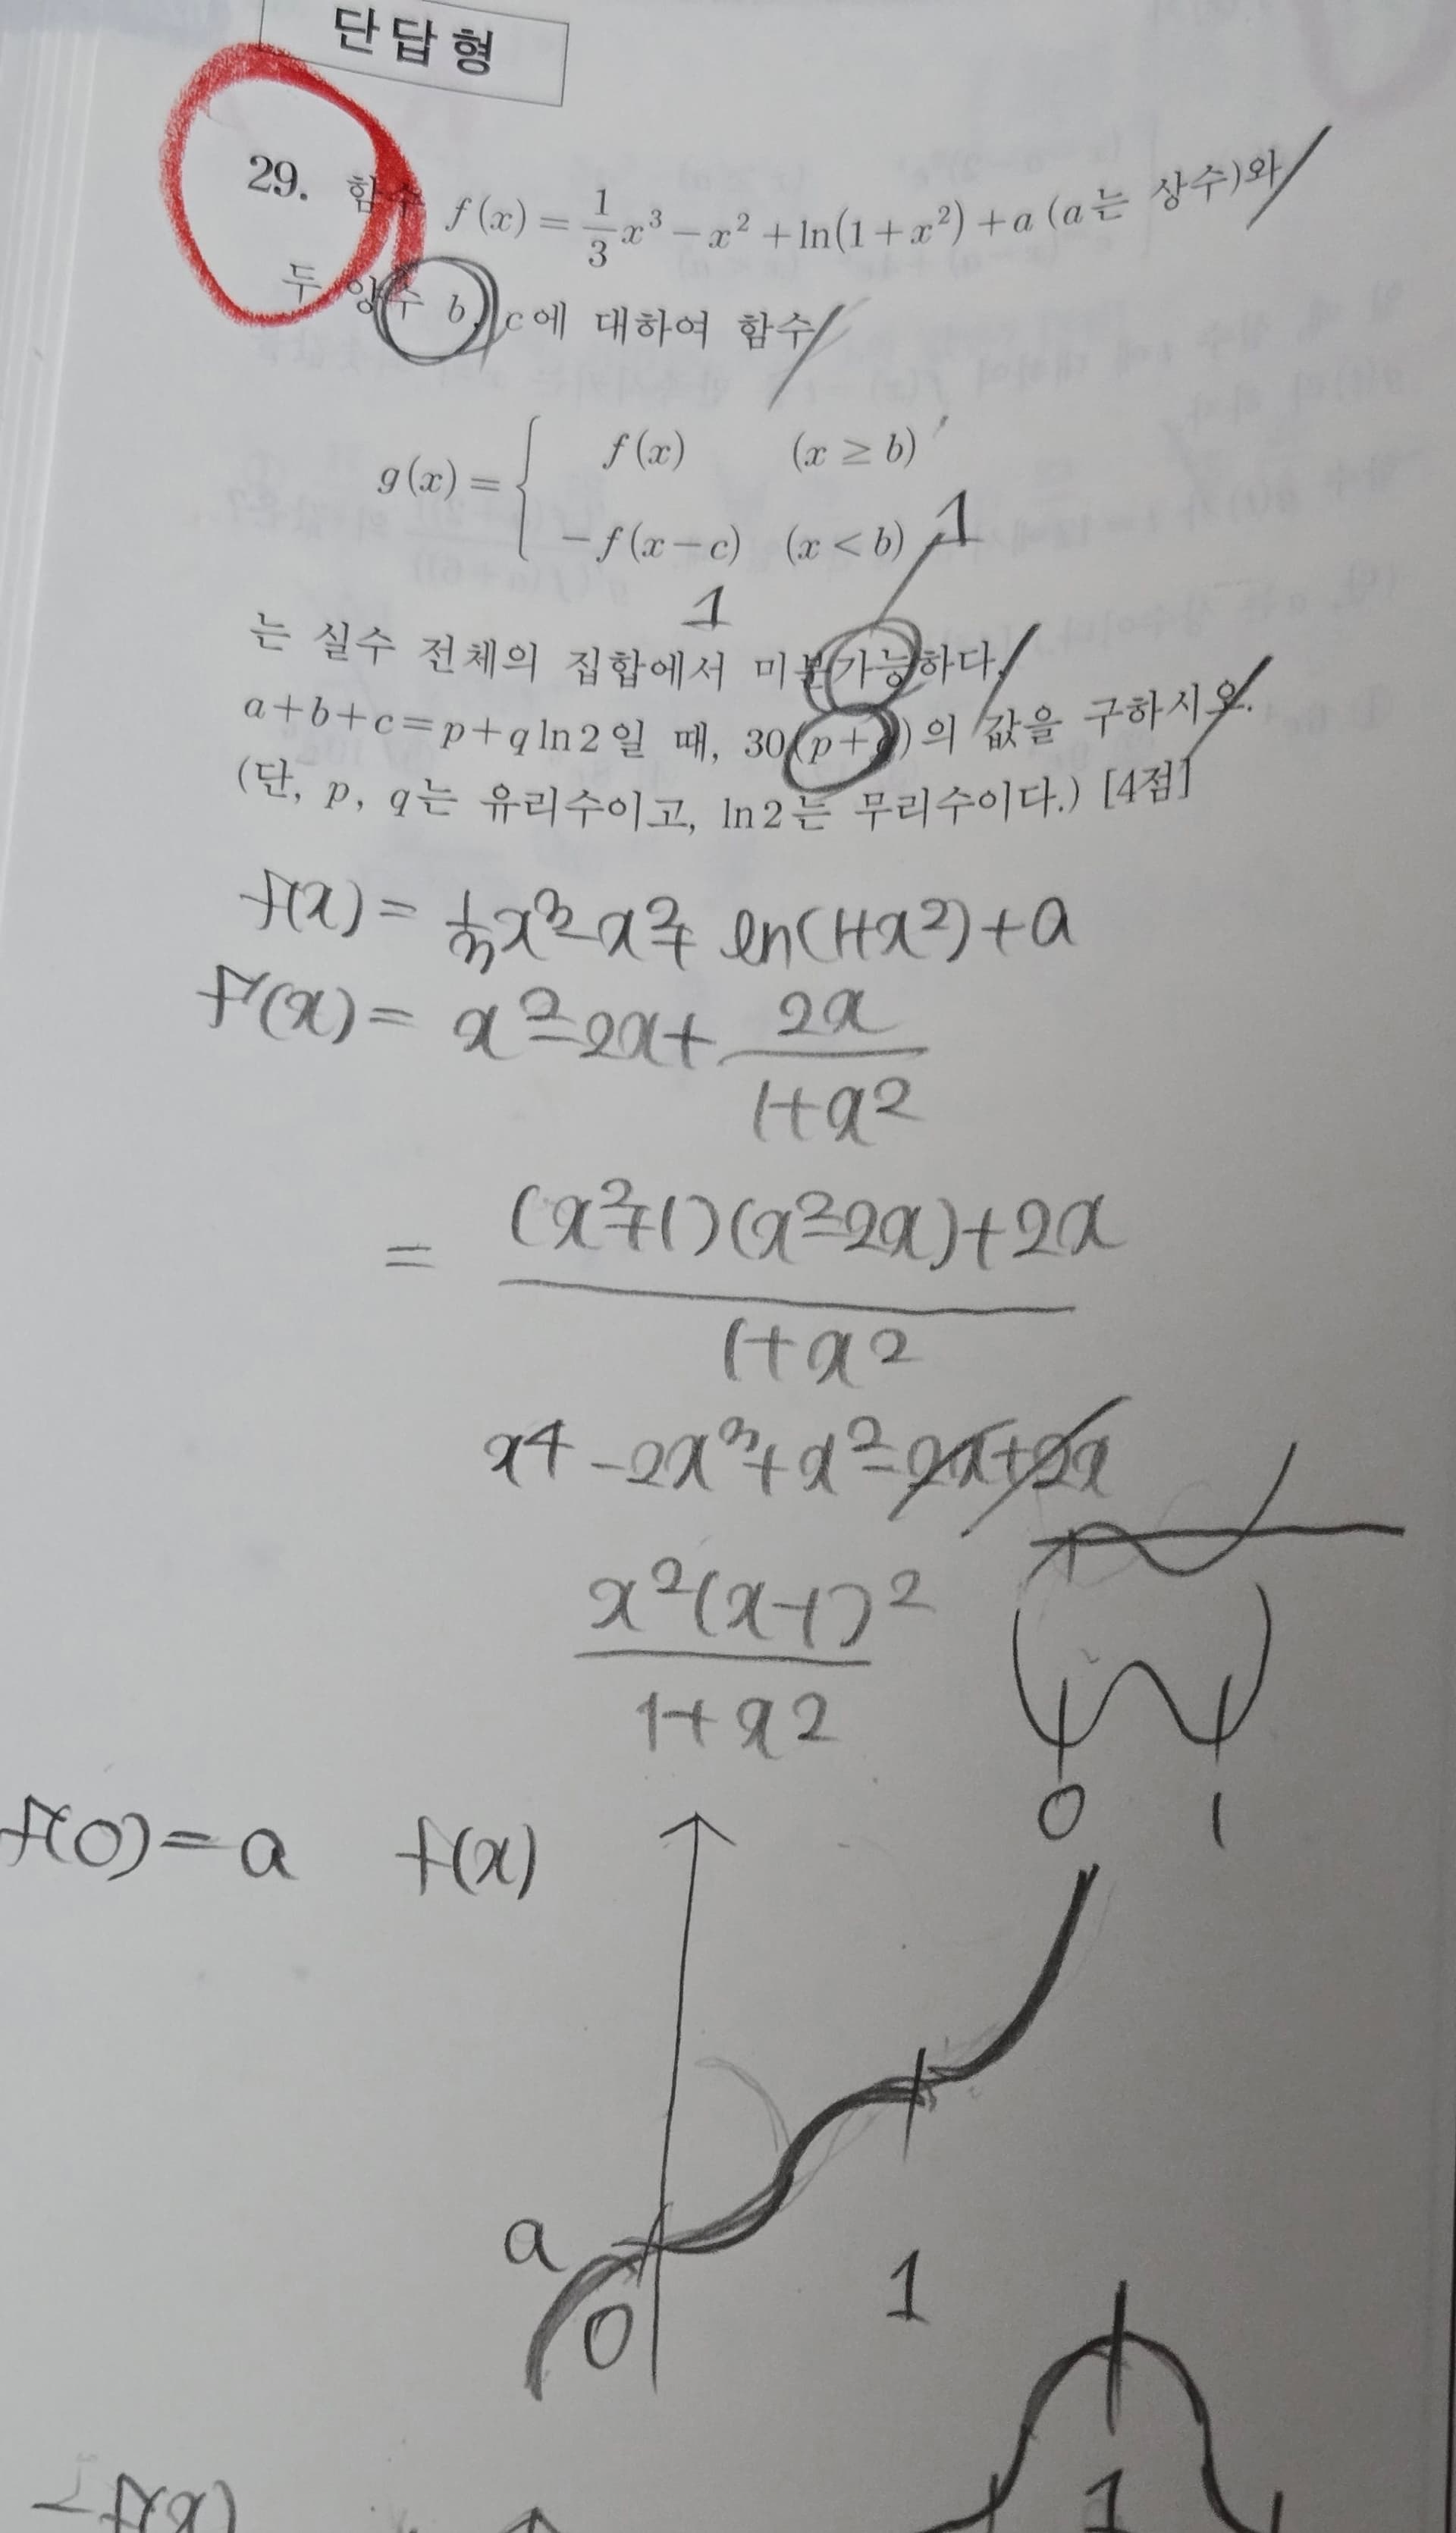 단답형
29. 함수 f(x) = 1/3 x³ - x² + ln(1+x²) + a (a는 상수)와
두 양수 b, c에 대하여 함수
g(x) = { f(x) (x ≥ b)
-f(x-c) (x < b)
1
1
는 실수 전체의 집합에서 미분가능하다.
a+b+c = p+q ln2일 때, 30(p+q)의 값을 구하시오.
(단, p, q는 유리수이고, ln2는 무리수이다.) [4점]
f(x) = 1/3 x³ - x² + ln(1+x²) + a
f'(x) = x² - 2x + 2x/(1+x²)
= ((x²+1)(x²-2x)+2x)/(1+x²)
x⁴ - 2x³ + x² - 2x + 2x
x²(x-1)²/(1+x²)
0 1
f(0) = a f(x)
a
0
1
1
-f(x)